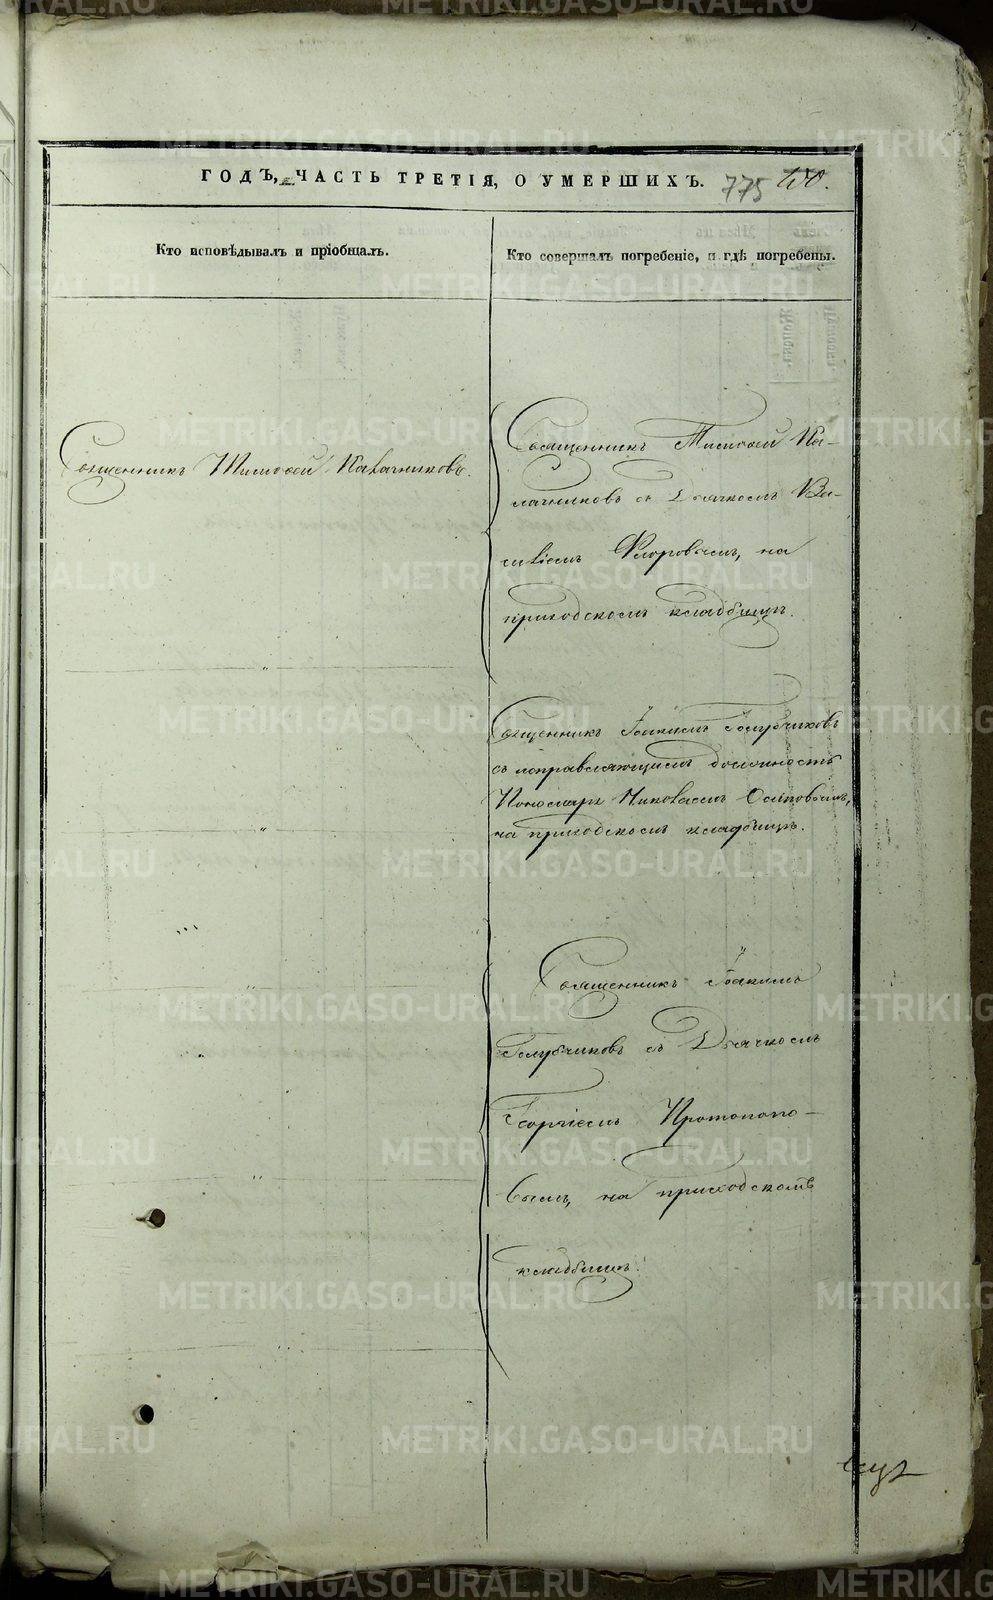 ГОДЪ, ЧАСТЬ ТРЕТІЯ, О УМЕРШИХЪ. 775
Кто исповѣдывалъ и пріобщалъ.
Кто совершалъ погребеніе, и гдѣ погребены.
Священникъ Тимоѳей Калачниковъ.
Священникъ Тимоѳей Ка-
лачниковъ съ Дьячкомъ Ва-
силіемъ Флоровымъ, на
приходскомъ кладбищѣ.
Священникъ Іоакимъ Голубчиковъ
съ исправляющимъ должность
Пономаря Николаемъ Осиповымъ,
на приходскомъ кладбищѣ.
Священникъ Іоакимъ
Голубчиковъ съ Дьячкомъ
Георгіемъ Протопопо-
вымъ, на приходскомъ
кладбищѣ.
METRIKI.GASO-URAL.RU